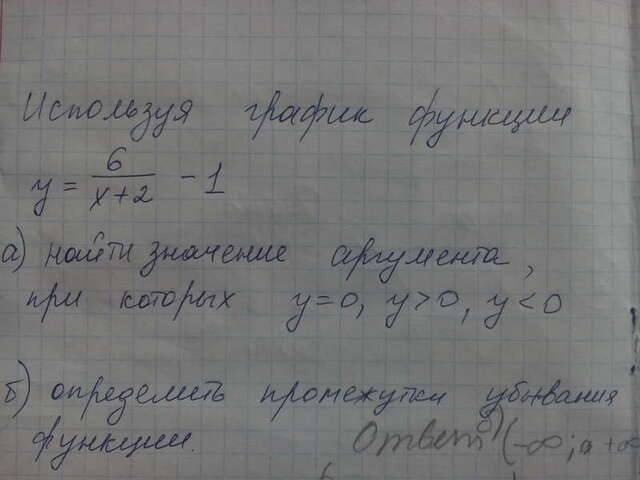 Используя график функции
y = 6/(x+2) - 1
а) найти значение аргумента,
при которых y=0, y>0, y<0
б) определить промежутки убывания
функции. Ответ (-∞;